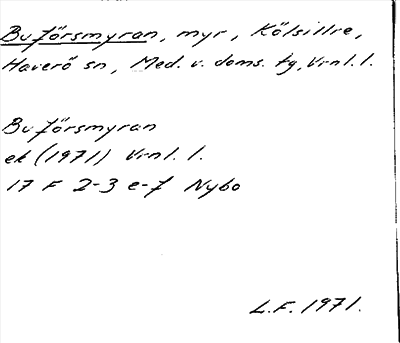 Buförsmyran, myr, Kölsillre,
Haverö sn, Med. v. doms. tg, Vrnl. l.
Buförsmyran
ek (1971) Vrnl. l.
17 F 2-3 e-f Nybo
L.F. 1971.